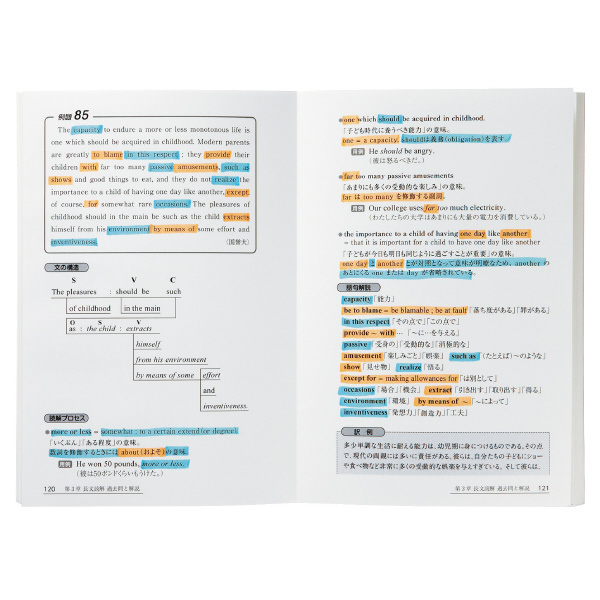 例題 85
The capacity to endure a more or less monotonous life is
one which should be acquired in childhood. Modern parents
are greatly to blame in this respect ; they provide their
children with far too many passive amusements, such as
shows and good things to eat, and they do not realize the
importance to a child of having one day like another, except,
of course, for somewhat rare occasions. The pleasures of
childhood should in the main be such as the child extracts
himself from his environment by means of some effort and
inventiveness.
文の構造
S V C
The pleasures : should be such
of childhood in the main
O S V
as : the child : extracts
himself
from his environment
by means of some effort
and
inventiveness.
読解プロセス
more or less = somewhat ; to a certain extend (or degree)
「いくぶん」「ある程度」の意味。
数詞を修飾するときには about (およそ)の意味。
用例 He won 50 pounds, more or less.
(彼は50ポンドくらいもうけた。)
120 第3章 長文読解 過去問と解説
one which should be acquired in childhood.
「子ども時代に養うべき能力」の意味。
one = a capacity. shouldは義務(obligation)を表す。
用例 He should be angry.
(彼は怒るべきだ。)
far too many passive amusements
「あまりにも多くの受動的な楽しみ」の意味。
far は too many を修飾する副詞。
用例 Our college uses far too much electricity.
(わたしたちの大学はあまりにも大量の電力を消費している。)
the importance to a child of having one day like another
= that it is important for a child to have one day like another
「子どもが今日も明日も同じように過ごすことが重要」の意味。
one day と another とが対照となって意味が明瞭なため、another の
あとにくる one または day が省略されている。
語句解説
capacity「能力」
be to blame = be blamable ; be at fault「落ち度がある」「罪がある」
in this respect「その点で」「この点で」
provide ~ with…「~に…を与える」
passive「受身の」「受動的な」「消極的な」
amusement「楽しみごと」「娯楽」 such as「(たとえば)~のような」
show「見せ物」 realize「悟る」
except for = making allowances for「は別として」
occasions「場合」「機会」 extract「引き出す」「取り出す」「得る」
environment「環境」 by means of ~「~によって」
inventiveness「発想力」「創造力」「工夫」
訳例
多少単調な生活に耐える能力は、幼児期に身につけるものである。その点
で、現代の両親は多いに責任がある。彼らは、自分たちの子どもにショー
や食べ物など非常に多くの受動的な娯楽を与えすぎている。そして彼らは、
第3章 長文読解 過去問と解説 121